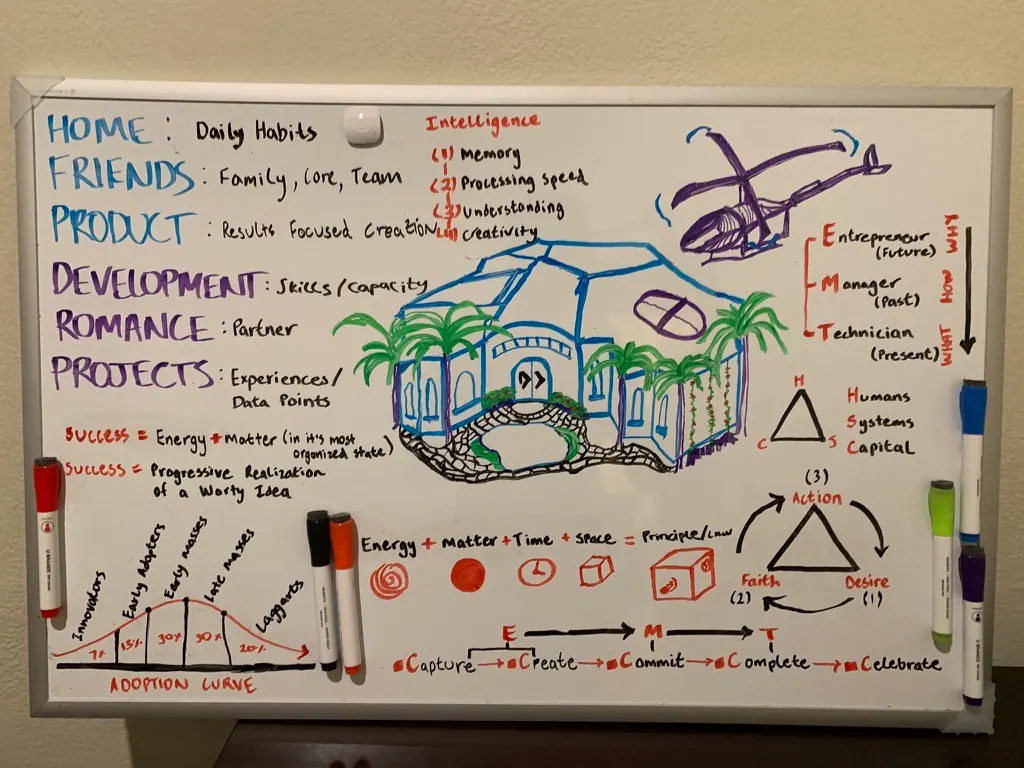 HOME : Daily Habits
FRIENDS : Family, Core, Team
PRODUCT : Results Focused Creation
DEVELOPMENT : Skills/Capacity
ROMANCE : Partner
PROJECTS : Experiences/
Data Points
Success = Energy + Matter (in it's most
organized state)
Success = Progressive Realization
of a Worty Idea
Intelligence
(1) Memory
(2) Processing Speed
(3) Understanding
(4) Creativity
Entrepreneur
(Future)
Manager
(Past)
Technician
(Present)
WHY
HOW
WHAT
H
C
S
Humans
Systems
Capital
(3)
Action
Faith
(2)
Desire
(1)
Innovators
Early Adopters
Early Masses
Late Masses
Laggarts
15%
30%
30%
20%
ADOPTION CURVE
Energy + Matter + Time + Space = Principle/Law
E M T
Capture Create Commit Complete Celebrate